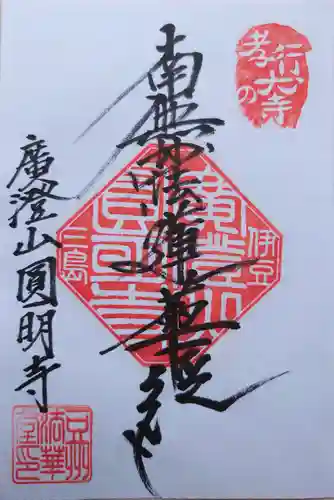 孝行犬の寺
南無妙法蓮華経
伊豆
廣澄山
圓明寺
三島
廣澄山圓明寺
豆州
法華